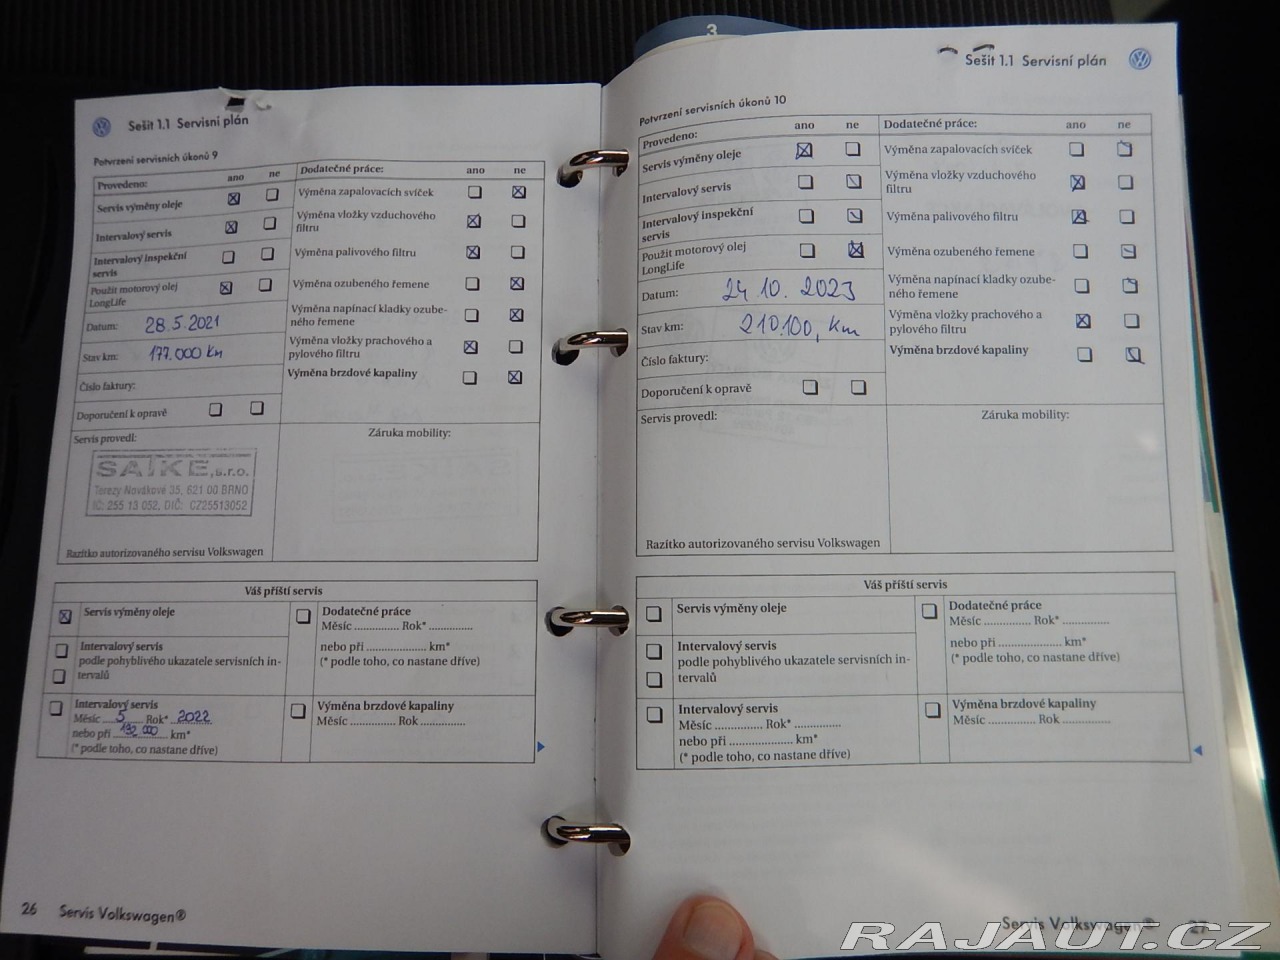 3
Sešit 1.1 Servisní plán
Potvrzení servisních úkonů 9
Provedeno: ano ne
Servis výměny oleje
Intervalový servis
Intervalový inspekční
servis
Použit motorový olej
LongLife
Datum: 28.5.2021
Stav km: 177.000 km
Číslo faktury:
Doporučení k opravě
Servis provedl:
SAIKE, s.r.o.
Terezy Novákové 35, 621 00 BRNO
IČ: 255 13 052, DIČ: CZ25513052
Razítko autorizovaného servisu Volkswagen
Dodatečné práce: ano ne
Výměna zapalovacích svíček
Výměna vložky vzduchového
filtru
Výměna palivového filtru
Výměna ozubeného řemene
Výměna napínací kladky ozube-
ného řemene
Výměna vložky prachového a
pylového filtru
Výměna brzdové kapaliny
Záruka mobility:
Váš příští servis
Servis výměny oleje
Intervalový servis
podle pohyblivého ukazatele servisních in-
tervalů
Intervalový servis
Měsíc 5 Rok* 2022
nebo při 192 000 km*
(* podle toho, co nastane dříve)
Dodatečné práce
Měsíc .............. Rok* .............
nebo při ..................... km*
(* podle toho, co nastane dříve)
Výměna brzdové kapaliny
Měsíc .............. Rok .............
26 Servis Volkswagen®
Sešit 1.1 Servisní plán
Potvrzení servisních úkonů 10
Provedeno: ano ne
Servis výměny oleje
Intervalový servis
Intervalový inspekční
servis
Použit motorový olej
LongLife
Datum: 24.10.2023
Stav km: 210.100, km
Číslo faktury:
Doporučení k opravě
Servis provedl:
Razítko autorizovaného servisu Volkswagen
Dodatečné práce: ano ne
Výměna zapalovacích svíček
Výměna vložky vzduchového
filtru
Výměna palivového filtru
Výměna ozubeného řemene
Výměna napínací kladky ozube-
ného řemene
Výměna vložky prachového a
pylového filtru
Výměna brzdové kapaliny
Záruka mobility:
Váš příští servis
Servis výměny oleje
Intervalový servis
podle pohyblivého ukazatele servisních in-
tervalů
Intervalový servis
Měsíc .............. Rok* .............
nebo při ..................... km*
(* podle toho, co nastane dříve)
Dodatečné práce
Měsíc .............. Rok* .............
nebo při ..................... km*
(* podle toho, co nastane dříve)
Výměna brzdové kapaliny
Měsíc .............. Rok .............
Servis Volkswagen® 27
RAJAUT.CZ